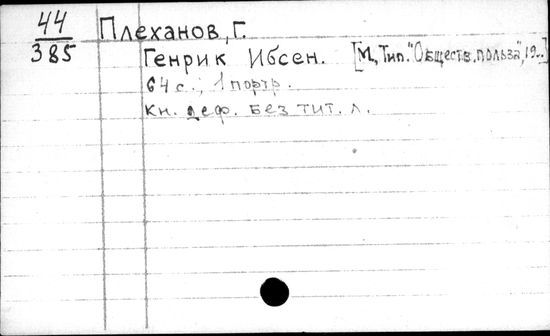 44
385
Плеханов, Г.
Генрик Ибсен. [М., Тип. "Обществ. польза", 19..]
64 с.; 1 портр.
Кн. деф. Без тит. л.